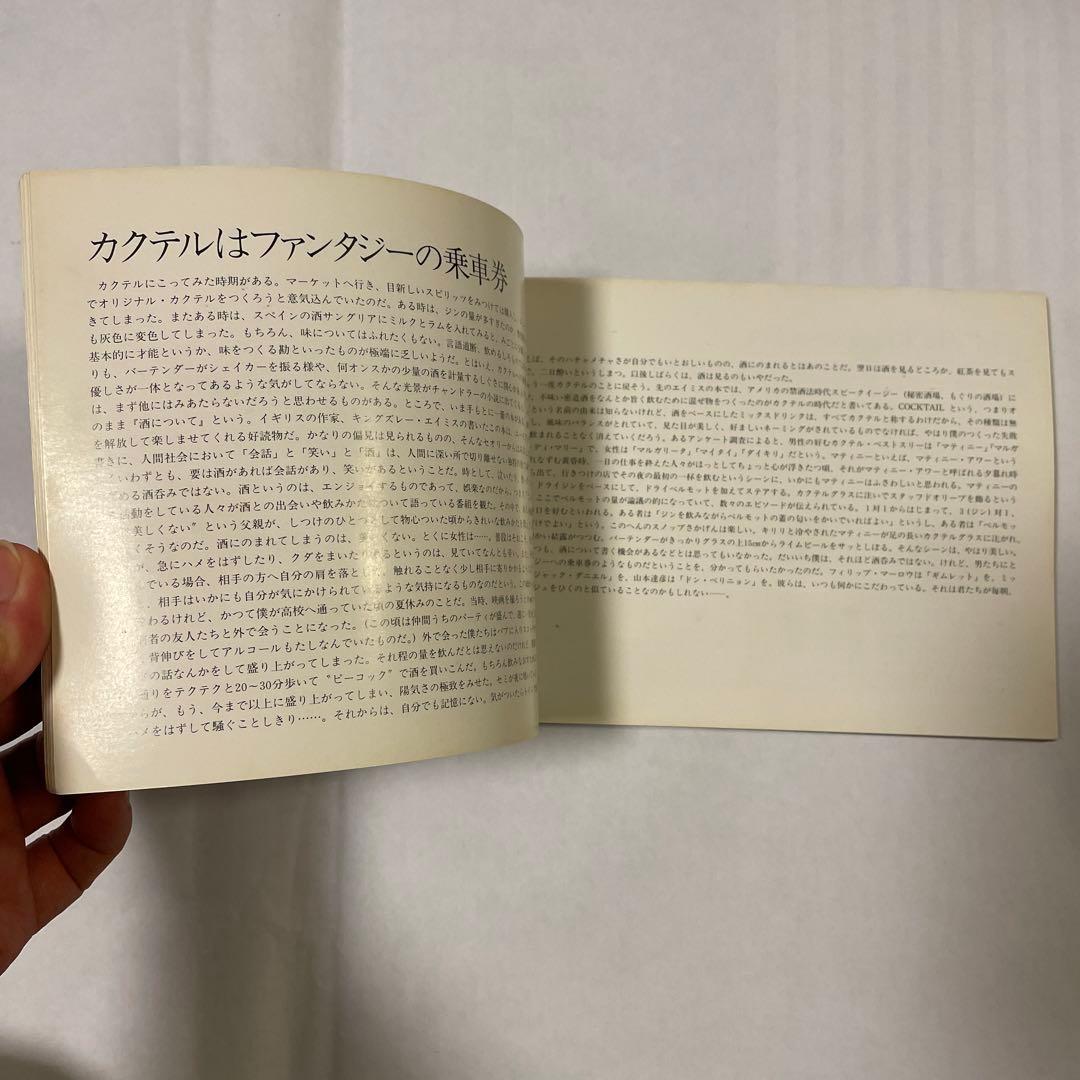 カクテルはファンタジーの乗車券
カクテルにこってみた時期がある。マーケットへ行き、目新しいスピリッツをみつけては購入し
でオリジナル・カクテルをつくろうと意気込んでいたのだ。ある時は、ジンの量が多すぎたのか
きてしまった。またある時は、スペインの酒サングリアにミルクとラムを入れてみると、みごとに
も灰色に変色してしまった。もちろん、味についてはふれたくもない。言語道断、飲めるしろもの
基本的に才能というか、味をつくる勘といったものが極端に乏しいようだ。とはいえ、カクテル
りも、バーテンダーがシェイカーを振る様や、何オンスかの少量の酒を計量するしぐさに
優しさが一体となってあるような気がしてならない。そんな光景がチャンドラーの小説に出て
は、まず他にはみあたらないだろうと思わせるものがある。ところで、いま手もとに一冊の本が
のまま『酒について』という。イギリスの作家、キングズレー・エイミスの書いたこの本は、
を解放して楽しませてくれる好読物だ。かなりの偏見は見られるものの、そんなセオリーから
に、人間社会において「会話」と「笑い」と「酒」は、人間に深い所で切り離せない
いわずとも、要は酒があれば会話があり、笑いがあるということだ。時として、泣いたり
める酒呑みではない。酒というのは、エンジョイするものであって、娯楽なのだから。
動をしている人々が酒との出会いや飲みかたについて語っている番組を観た。その中で
美しくない〟という父親が、しつけのひとつとして物心ついた頃からきれいな飲みかた
くそうなのだ。酒にのまれてしまうのは、美しくない。とくに女性は……。普段はそれ
、急にハメをはずしたり、クダをまいたりするというのは、見ていてなんとも辛い。
でいる場合、相手の方へ自分の肩を落とし、触れることなく少し相手に寄りかかる
、相手はいかにも自分が気にかけられているような気持になるものなのだという。
わるけれど、かつて僕が高校へ通っていた頃の夏休みのことだ。当時、映画を撮ろう
者の友人たちと外で会うことになった。(この頃は仲間うちのパーティが盛んで、
背伸びをしてアルコールもたしなんでいたものだ。)外で会った僕たちはパブに入り
の話なんかをして盛り上がってしまった。それ程の量を飲んだとは思えないのだけれど、
通りをテクテクと20〜30分歩いて〝ピーコック〟で酒を買いこんだ。もちろん飲みなおす
が、もう、今まで以上に盛り上がってしまい、陽気さの極致をみせた。セミが夜に
メをはずして騒ぐことしきり……。それからは、自分でも記憶にない。気がついたら
ば、そのハチャメチャさが自分でもいとおしいものの、酒にのまれるとはあのことだ。翌日は酒を見るどころか、紅茶を見てもス
。二日酔いというしまつ。以後しばらくは、酒は見るのもいやだった。
う一度カクテルのことに戻そう。先のエイミスの本では、アメリカの禁酒法時代スピークイージー(秘密酒場、もぐりの酒場)に
、不味い密造酒をなんとか旨く飲むために混ぜ物をつくったのがカクテルの時代だと書いてある。COCKTAIL という、つまりオ
という名前の由来は知らないけれど、酒をベースにしたミックスドリンクは、すべてカクテルと称するわけだから、その種類は無
し、風味のバランスがとれていて、見た目が美しく、好ましいネーミングがされているものでなければ、やはり僕のつくった失敗
飲まれることなく消えていくだろう。あるアンケート調査によると、男性の好むカクテル・ベストスリーは「マティニー」「マルガ
ディ・マリー」で、女性は「マルガリータ」「マイタイ」「ダイキリ」だという。マティニーといえば、マティニー・アワーという
れなずむ黄昏時、一日の仕事を終えた人々がほっとしてちょっと心が浮きたつ頃、それがマティニー・アワーと呼ばれる夕暮れ時
ら出て、行きつけの店でその夜の最初の一杯を飲むというシーンに、いかにもマティニーはふさわしいと思われる。マティニーの
ドライジンをベースにして、ドライベルモットを加えてステアする。カクテルグラスに注いでスタッフドオリーブを飾るという
ここでベルモットの量が論議の的になっていて、数々のエピソードが伝えられている。1対1からはじまって、3(ジン)対1、
口を好むといわれる。ある者は「ジンを飲みながらベルモットの蓋の匂いをかいでいればよい」というし、ある者は「ベルモッ
けでよい」という。このへんのスノッブさかげんは楽しい。キリリと冷やされたマティニーが足の長いカクテルグラスに注がれ、
かい結露がつつむ。バーテンダーがきっかりグラスの上15cmからライムピールをサッとしぼる。そんなシーンは、やはり美しい。
つも、酒について書く機会があるなどとは思ってもいなかった。だいいち僕は、それほど酒呑みではない。けれど、男たちにと
ジーへの乗車券のようなものだということを、分かってもらいたかったのだ。フィリップ・マーロウは「ギムレット」を、ミッ
ジャック・ダニエル」を、山本達彦は「ドン・ペリニョン」を。彼らは、いつも何かにこだわっている。それは君たちが毎朝、
ュをひくのと似ていることなのかもしれない——。